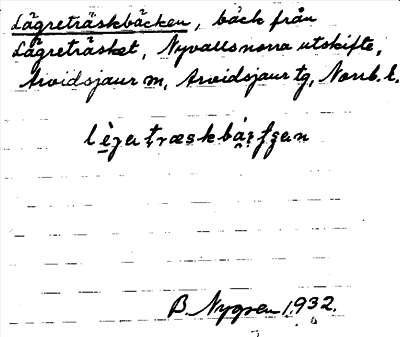 Lägreträskbäcken, bäck från
Lägreträsket, Nyvalls norra utskifte,
Arvidsjaur sn, Arvidsjaur tg, Norrb. l.
B. Nygren 1932.